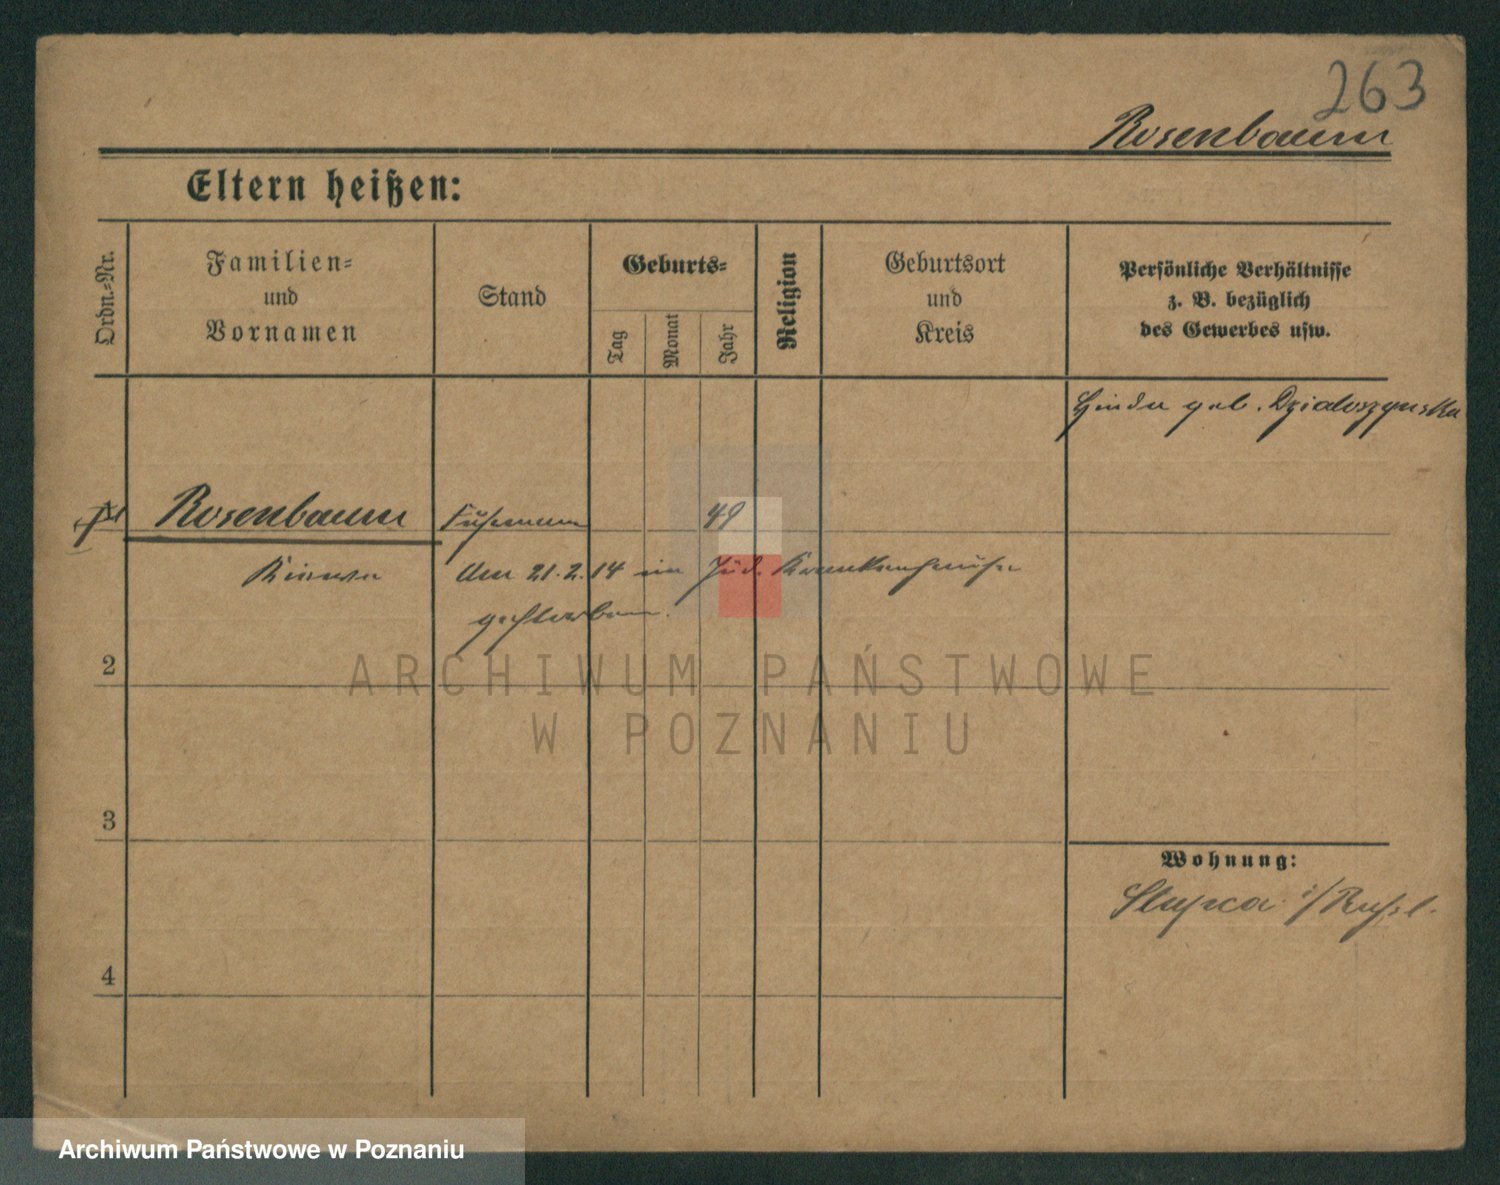 263
Rosenbaum
Eltern heißen:
Ordn.-Nr.
Familien-
und
Vornamen
Stand
Geburts-
Tag
Monat
Jahr
Religion
Geburtsort
und
Kreis
Persönliche Verhältnisse
z. B. bezüglich
des Gewerbes usw.
geb. Dzialoszynska
Rosenbaum
49
den 21.2.14 im Jüd. Krankenhause
gestorben.
ARCHIWUM PAŃSTWOWE
W POZNANIU
2
3
4
Wohnung:
Slupca i/Russl.
Archiwum Państwowe w Poznaniu